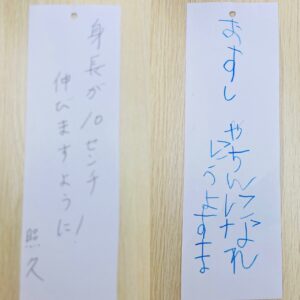 身長が10センチ
伸びますように!
照久
おすし やさんになれ
にうよすま